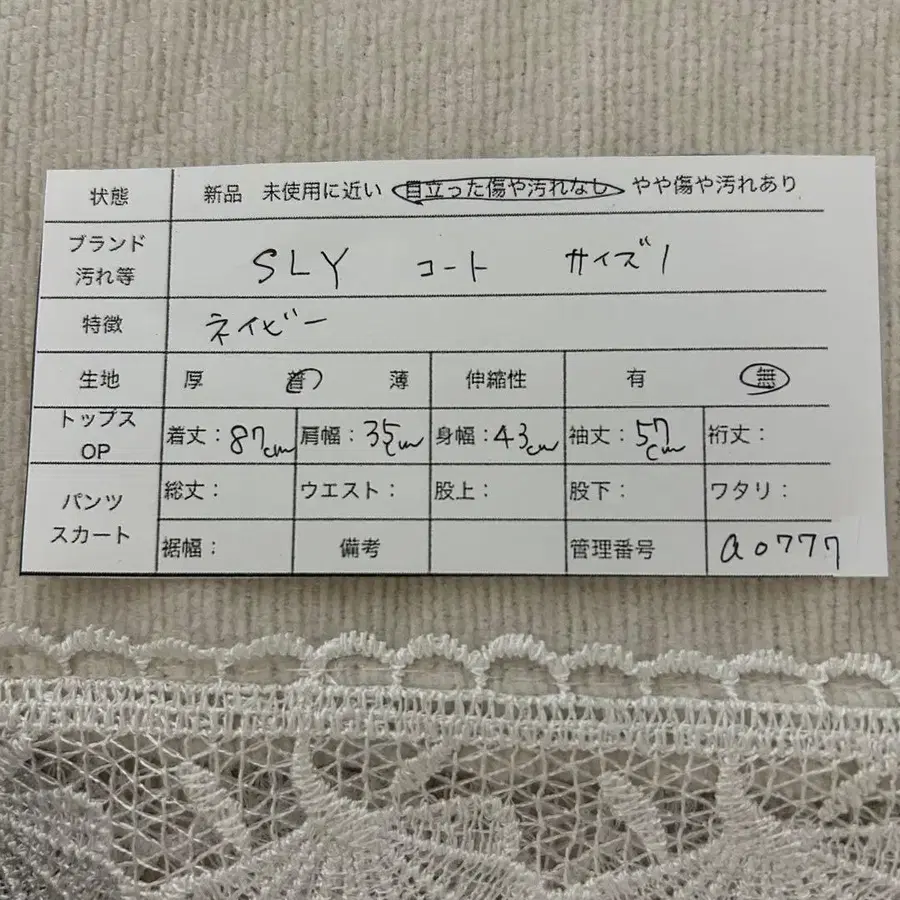 状態 新品 未使用に近い 目立った傷や汚れなし やや傷や汚れあり
ブランド
汚れ等 SLY コート サイズ1
特徴 ネイビー
生地 厚 普 薄 伸縮性 有 無
トップス
OP 着丈：87cm 肩幅：35cm 身幅：43cm 袖丈：57cm 裄丈：
パンツ
スカート 総丈： ウエスト： 股上： 股下： ワタリ：
裾幅： 備考 管理番号 a0777